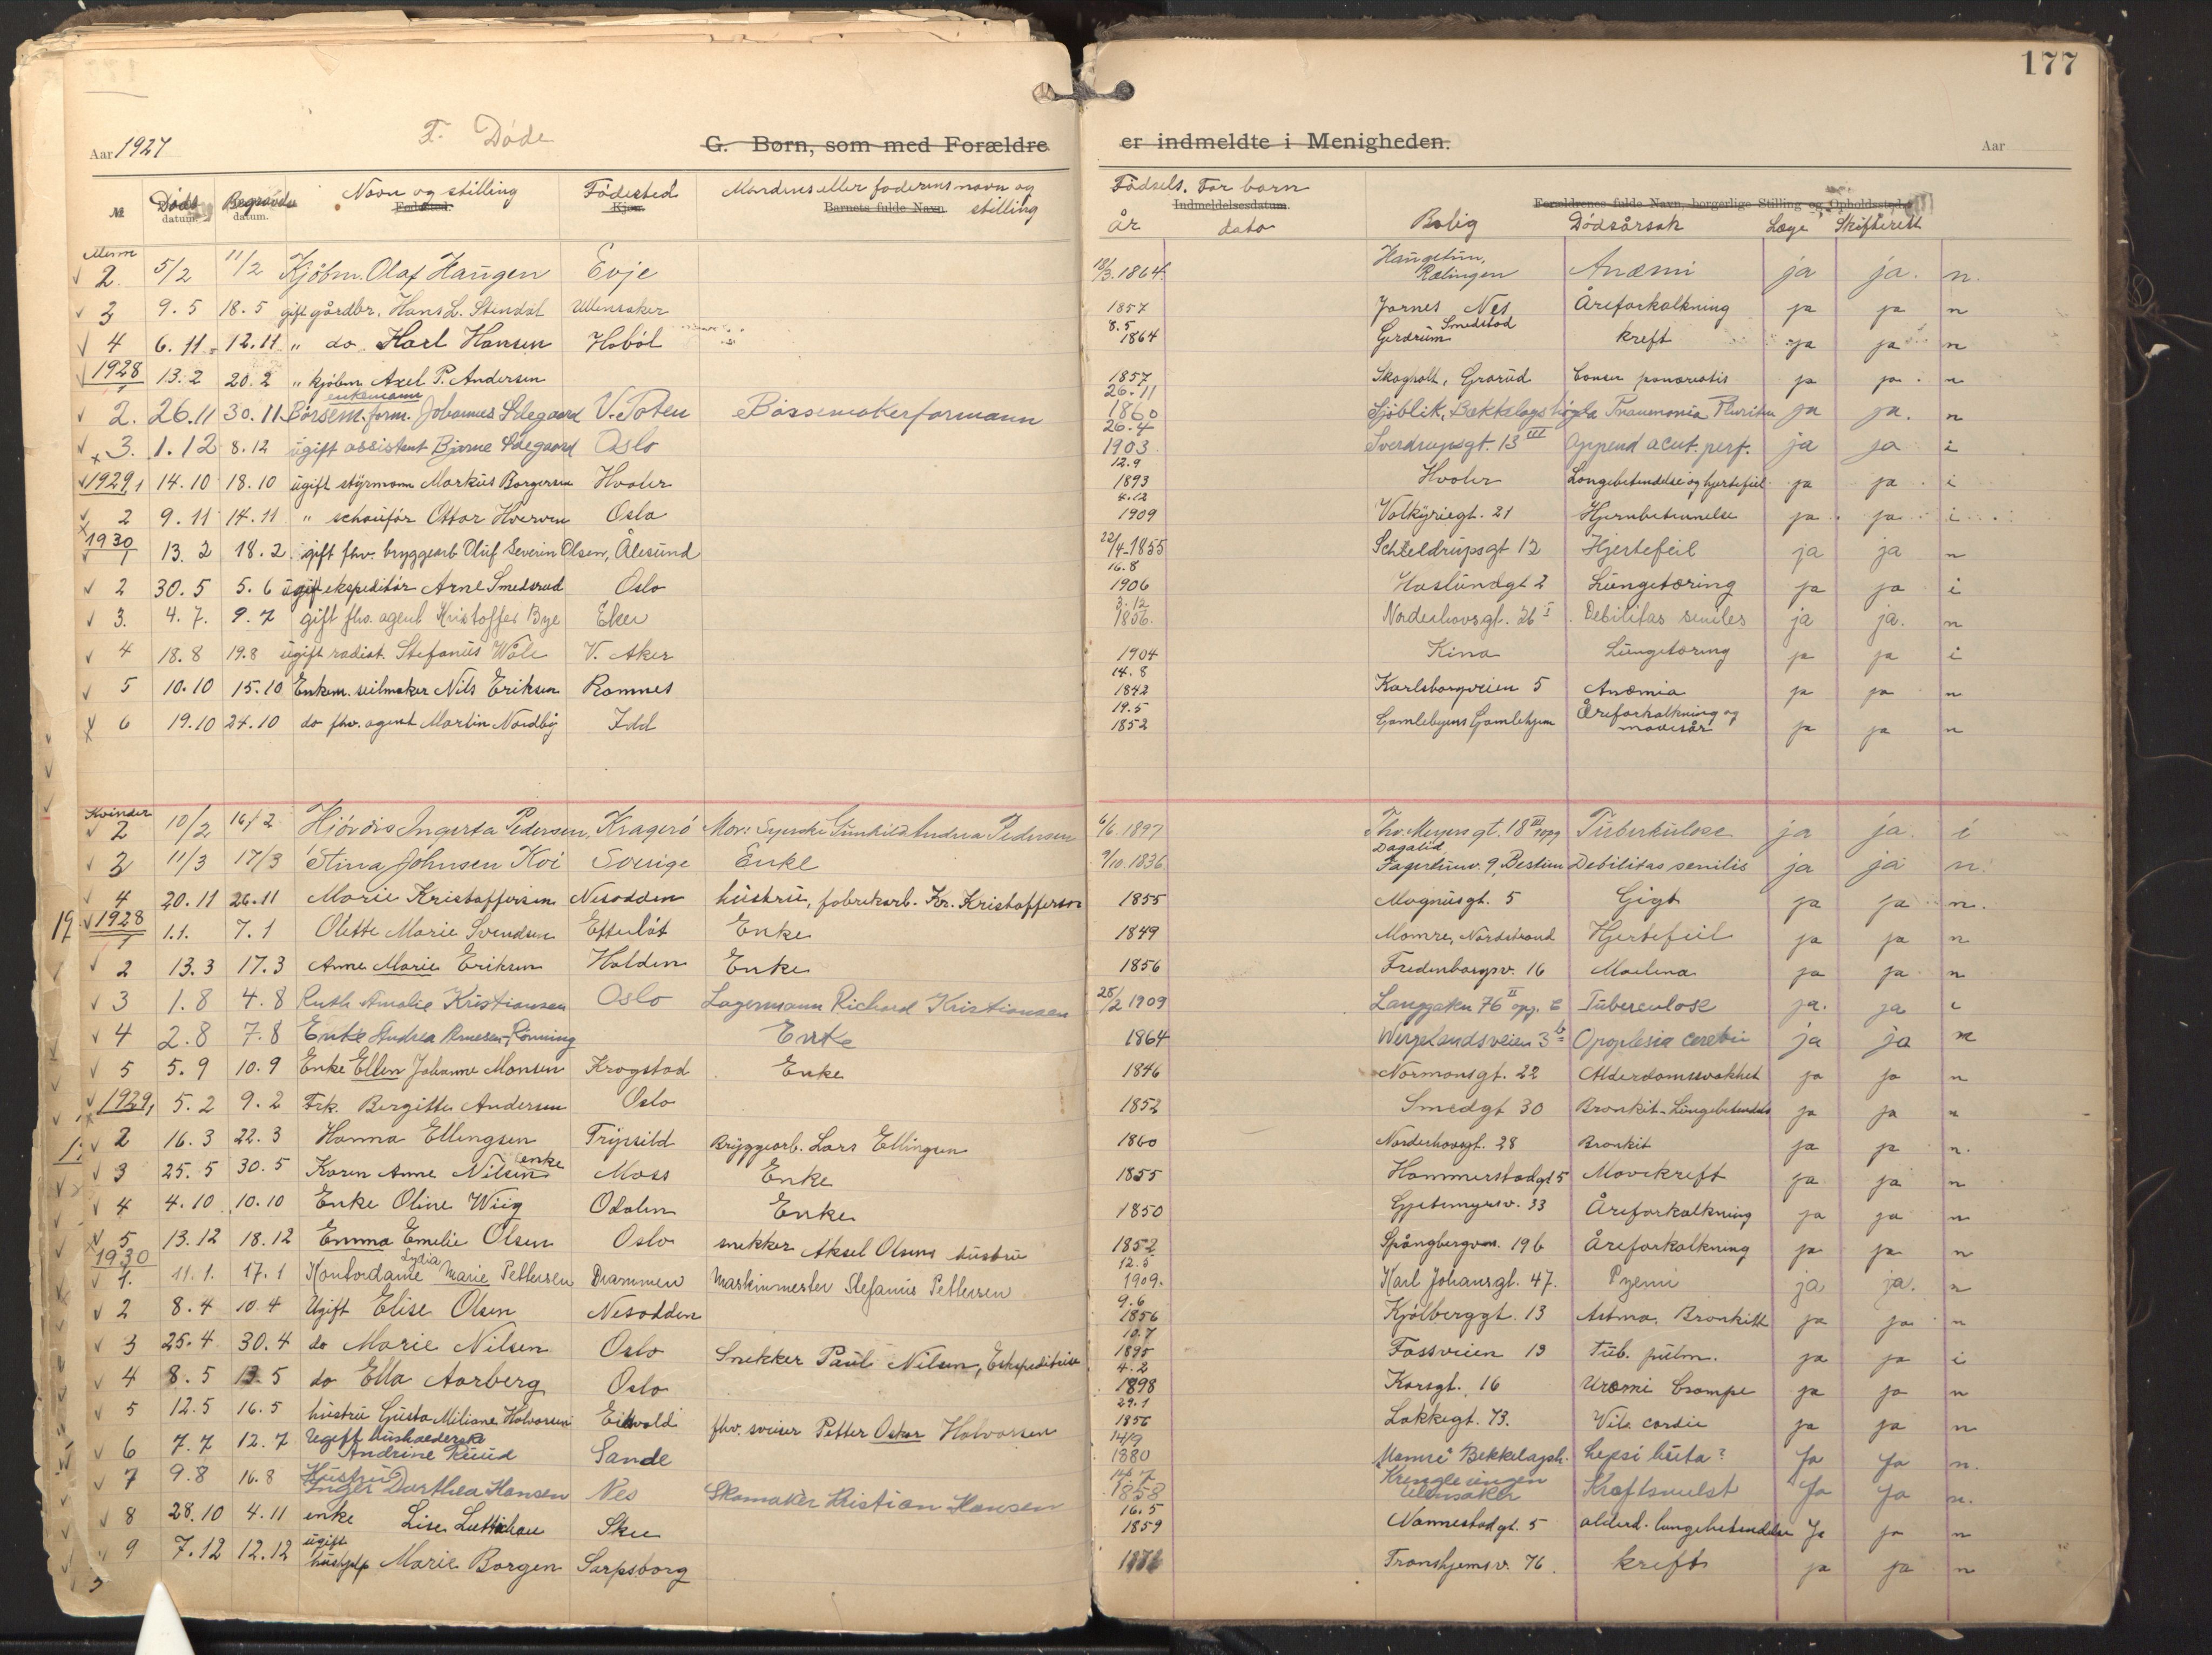 177
F. Døde
Aar 1927 G. Børn, som med Forældre er indmeldte i Menigheden. Aar
№ Døds datum. Begravds datum. Navn og stilling Fødested Mandens eller faderens navn og stilling Fødsels. For barn
Fødested. Kjøn. Barnets fulde Navn. Indmeldelsesdatum. Forældrenes fulde Navn, borgerlige Stilling og Opholdssted
År dato Bolig Dødsårsak Læge Skifterett
Menn
2. 5/2 11/2 Kjøbm. Olaf Haugen Evje 18/3. 1864. Haugetun, Rælingen Anæmi ja ja. n.
3 9.5 18.5 gift gårdbr. Hans L. Stendal Ullensaker 1857 Jarnes Nes Åreforkalkning ja ja n
4 6.11 12.11 " do Karl Hansen Hobøl 8.5 1864 Gerdrum Smedstad kreft ja ja n
1928
1 13.2 20.2 " kjøbm Axel P. Andersen 1857 Skogholt, Grorud Cancer pancreatis ja ja n
2. 26.11 30.11 enkemann Børsem. form. Johannes Ødegaard V. Toten Bøssemakerformann 26.11 1860 Sjøblik, Bækkelagshøgda Pneumonia Pleuritis ja ja. n
3. 1.12 8.12 ugift assistent Bjarne Ødegaard Oslo 26.4 1903 Sverdrupsgt. 13 III Append acut. perf. ja ja i
1929, 1 14.10 18.10 ugift styrmann Markus Borgersen Hvaler 12.9 1893 Hvaler Lungebetendelse og hjertefeil ja ja i
2 9.11 14.11 " schauför Ottar Hverven Oslo 4.12 1909 Valkyriegt. 21 Hjernbetennelse ja ja i
1930
1 13.2 18.2 gift fhv. bryggearb Oluf Severin Olsen, Ålesund 22/4-1855 Schteldrupsgt 12 Hjertefeil ja ja n
2 30.5 5.6 ugift ekspeditör Arne Smedsrud Oslo 16.8 1906 Haslundgt 2 Lungetæring ja ja i
3. 4.7. 9.7 gift fhv. agent Kristoffer Bye Eker 3.12 1856. Norderhovsgt. 26 I Debilitas seniles ja ja. n
4 18.8 19.8 ugift radiot. Stefanus Wåle V. Aker 1904 Kina Lungetæring ja ja i
5 10.10 15.10 Enkem. seilmaker Nils Eriksen Ramnes 14.8 1842 Karlsborgveien 5 Anæmia ja ja n
6 19.10 24.10 do fhv. agent Martin Nordby Idd 19.5 1852 Gamlebyens Gamlehjem Åreforkalkning og mavesår ja ja n
Kvinder
2 10/2 16/2 Hjördis Ingerta Pedersen, Kragerö Mor: Syerske Gunhild Andrea Pedersen 6/6. 1897 Thv. Meyers gt. 18 III oppg Tuberkulose ja ja. i
3 11/3 17/3 Stina Johnsen Koi Sverige Enke 9/10. 1836. Dagalid Fagertunv. 9, Bestum Debilitas senilis ja ja n.
4 20.11 26.11 Marie Kristoffersen Nesodden hustru, fabrikarb. Kr. Kristoffersen 1855 Magnusgt. 5 Gigt ja ja n.
19 1928
1 1.1. 7.1 Olette Marie Svendsen Efteløt Enke 1849 Mamre, Nordstrand Hjertefeil ja ja n
2 13.3 17.3 Anne Marie Eriksen Halden Enke 1856 Fredensborgsv. 16 Maelena ja ja n
3 1.8 4.8 Ruth Amalie Kristiansen Oslo Lagermann Richard Kristiansen 28/2 1909 Langgaten 76 II opg. C Tuberculose ja. ja i
4 2.8 7.8 Enke Andrea Arnesen-Rönning Enke 1864 Wergelandsveien 3 b Opoplesia cerebri ja ja n
5 5.9 10.9 Enke Ellen Johanne Monsen Krogstad Enke 1846 Normansgt. 22 Alderdomssvakhet ja ja n
1929, 5.2 9.2 Frk. Bergitte Andersen Oslo 1852 Smedgt 30 Bronkit-Lungebetendelse ja ja n
2 16.3 22.3 Hanna Ellingsen Trysild Bryggearb. Lars Ellingsen 1860 Norderhovsgt. 28 Bronkit ja ja n.
3 25.5 30.5 Karen Anne Nilsen enke Moss Enke 1855 Hammerstadgt 5 Mavekreft ja ja n
4 4.10 10.10 Enke Oline Wiig Odalen Enke 1850 Gjetemyrsv. 33 Åreforkalkning ja ja n
5 13.12 18.12 Emma Emelie Olsen Oslo snekker Aksel Olsens hustru 1852 Spångbergvn. 19b Åreforkalkning ja ja n
1930
1. 11.1. 17.1 Kontordame Lydia Marie Pettersen Drammen Maskinmester Stefanus Pettersen 12.5 1909. Karl Johansgt. 47. Pyemi ja ja. n
2 8.4 10.4 Ugift Elise Olsen Nesodden 9.6 1856 Kjølberggt. 13 Astma, Bronkitt ja ja n
3 25.4 30.4 do Marie Nilsen Oslo Snekker Paul Nilsen, Ekspeditrise 10.7 1895 Fossveien 19 Tub. pulm. ja ja i
4 8.5 13.5 do Ella Aarberg Oslo 4.2 1898 Korsgt. 16 Uræmi Crampe ja ja n
5 12.5 16.5 hustru Gusta Miliane Halvorsen Eidsvold fhv. sveiser Petter Oskar Halvorsen 29.1 1856 Lakkegt. 73. Vit. cordis ja ja n
6 7.7 12.7 Ugift husholderske Andrine Ruud Sande 14/9 1880 "Mamre" Bekkelagsh. Lepsi luita? Ja Ja n.
7 9.8 16.8 Hustru Inger Dorthea Hansen Nes Skomaker Kristian Hansen 1858 Krengleungen Ullensaker Kreftsvulst Ja Ja n.
8 28.10 4.11 enke Lise Luttichau Sku 16.5 1859 Nannestadgt. 5 alderd. lungebetendelse Ja ja n
9 7.12 12.12 ugift hushjelp Marie Borgen Sarpsborg Tronshjemsv. 76. kreft ja ja n